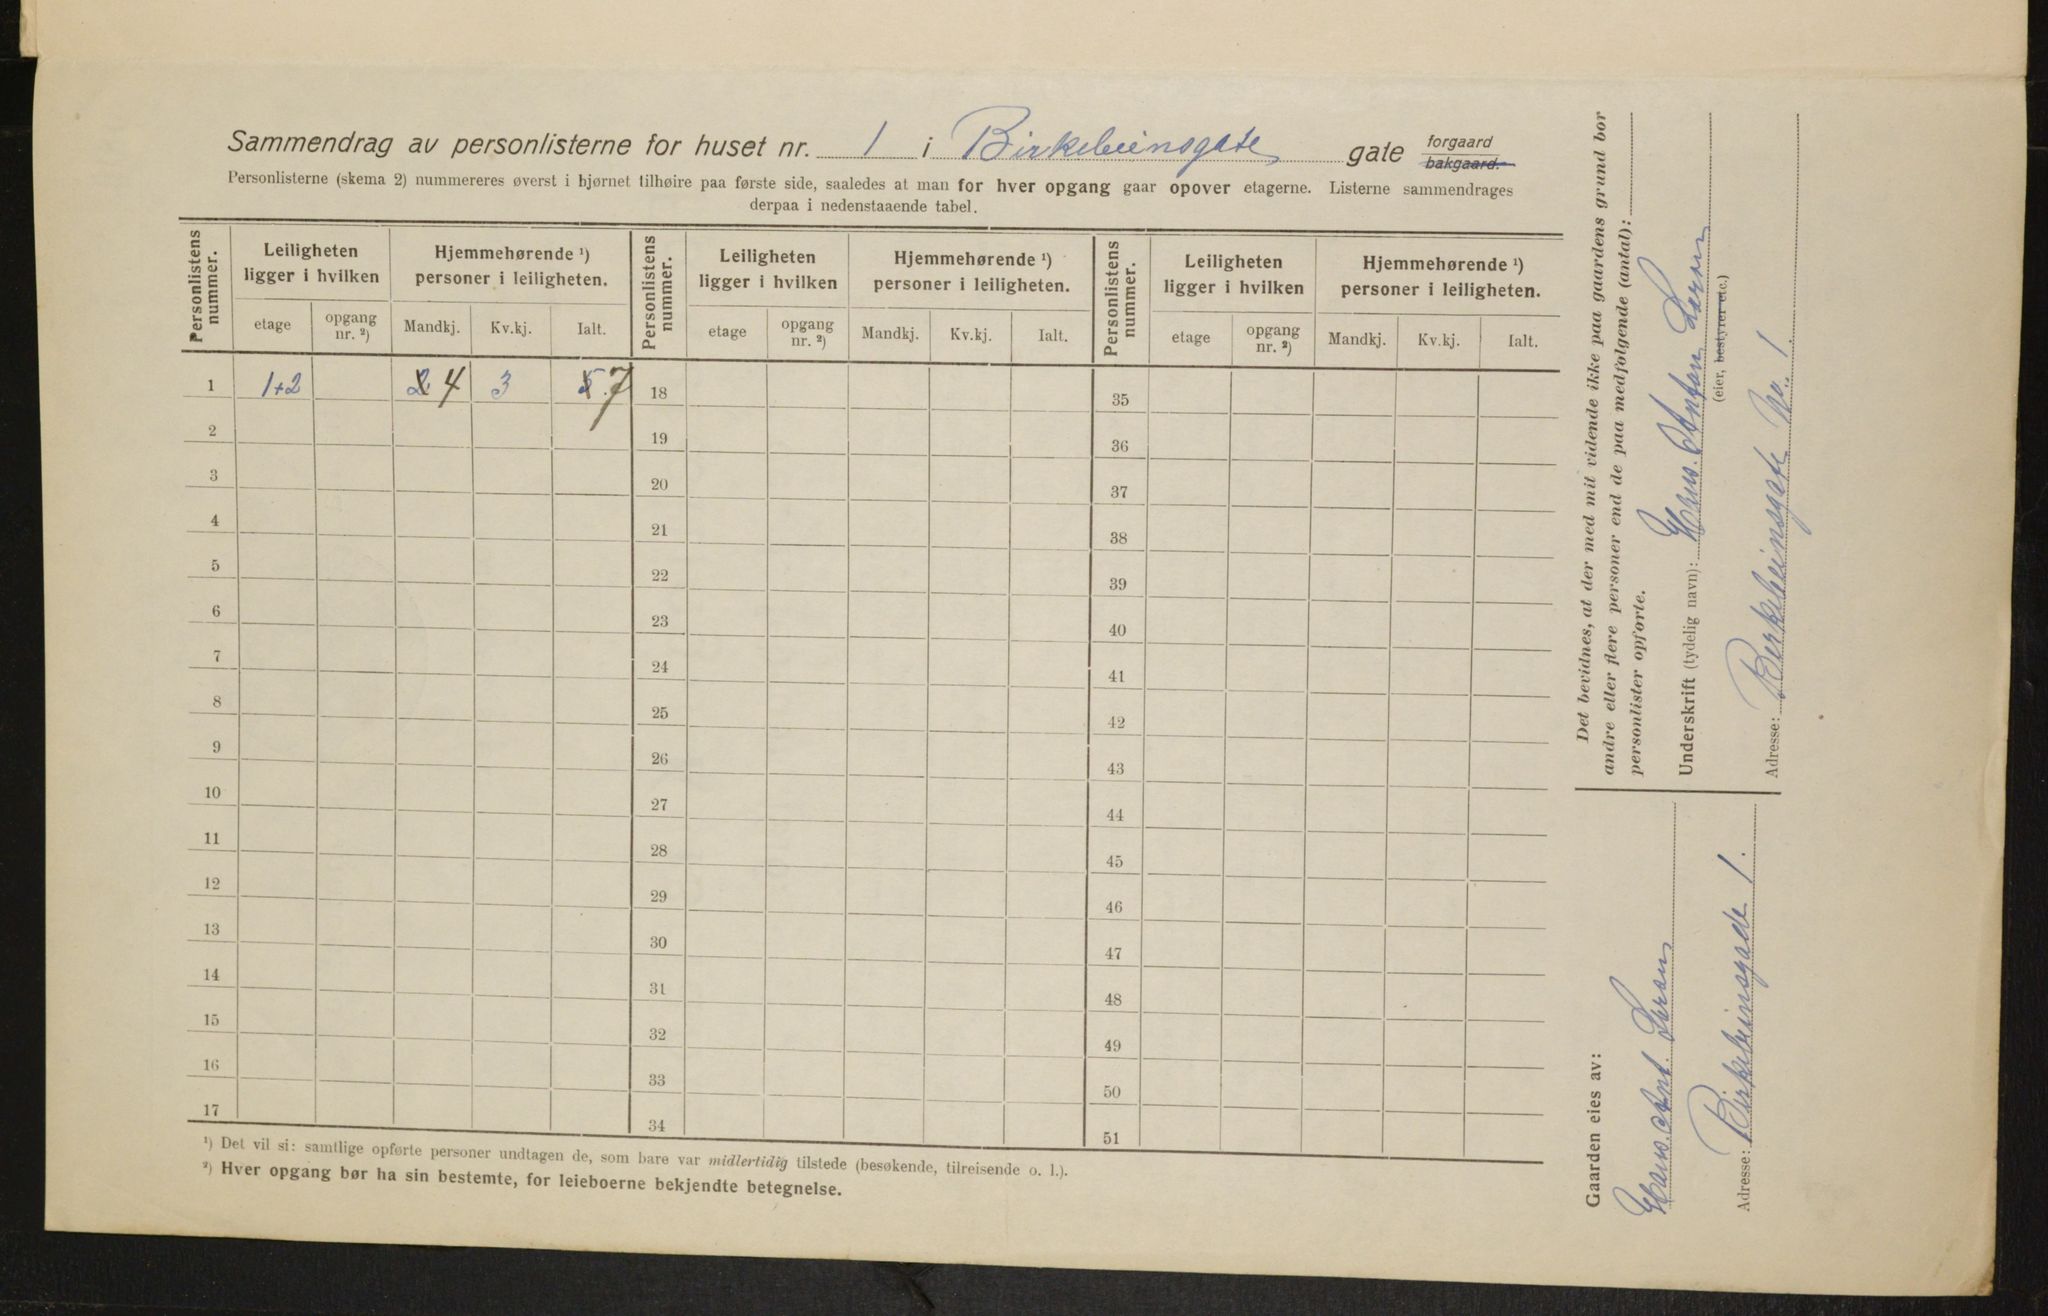 Sammendrag av personlisterne for huset nr. 1 i Birkebeinsgate gate forgaard bakgaard.
Personlisterne (skema 2) nummereres øverst i hjørnet tilhøire paa første side, saaledes at man for hver opgang gaar opover etagerne. Listerne sammendrages
derpaa i nedenstaaende tabel.
Personlistens nummer. Leiligheten ligger i hvilken Hjemmehørende ¹) personer i leiligheten. Personlistens nummer. Leiligheten ligger i hvilken Hjemmehørende ¹) personer i leiligheten. Personlistens nummer. Leiligheten ligger i hvilken Hjemmehørende ¹) personer i leiligheten.
etage opgang nr. ²) Mandkj. Kv.kj. Ialt. etage opgang nr. ²) Mandkj. Kv.kj. Ialt. etage opgang nr. ²) Mandkj. Kv.kj. Ialt.
1 1+2 2 4 3 5. 7 18 35
2 19 36
3 20 37
4 21 38
5 22 39
6 23 40
7 24 41
8 25 42
9 26 43
10 27 44
11 28 45
12 29 46
13 30 47
14 31 48
15 32 49
16 33 50
17 34 51
¹) Det vil si: samtlige opførte personer undtagen de, som bare var midlertidig tilstede (besøkende, tilreisende o. l.).
²) Hver opgang bør ha sin bestemte, for leieboerne bekjendte betegnelse.
Det bevidnes, at der med mit vidende ikke paa gaardens grund bor
andre eller flere personer end de paa medfølgende (antal):
personlister opførte.
Underskrift (tydelig navn): Hans. Anton Larsen
(eier, bestyrer etc.)
Adresse: Birkebeinsgate No. 1.
Gaarden eies av:
Hans. Ant. Larsen
Adresse: Birkebeinsgade 1.